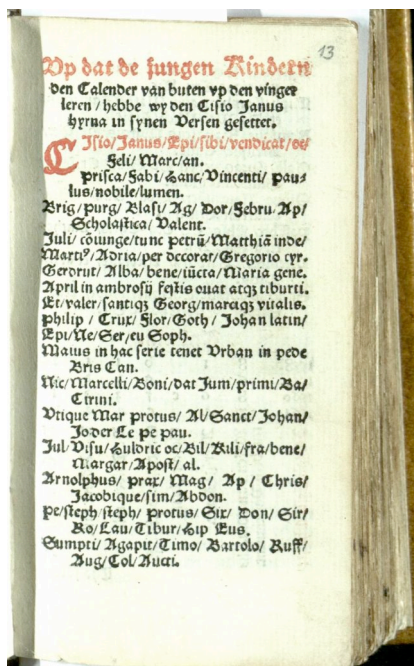 13
Vp dat de jungen Kindern
den Calender van buten vp den vinger
leren / hebbe wy den Cisio Janus
hyrna in synen Versen gesettet.
CIsio/Janus/Epi/sibi/vendicat/oc/
Feli/ Marc/an.
Prisca/Fabi/Hanc/Vincenti/ pau⸗
lus/nobile/lumen.
Brig/purg/Blasi/Ag/Dor/Febru/Ap/
Scholastica/Valent.
Juli/cōiunge/tunc petrū/Matthiā inde/
Martiꝰ/Adria/per decorat/Gregorio cyr.
Gerdrut/Alba/bene/iūcta/Maria gene.
April in ambrosij festis ouat atqꝫ tiburti.
Et/valer/santiqꝫ Georg/marciqꝫ vitalis.
Philip / Crux/ Flor/Goth / Johan latin/
Epi/Ne/Ser/eu Soph.
Maius in hac serie tenet Vrban in pede
Bris Can.
Nic/Marcelli/Boni/dat Jum/primi/Ba/
Cirini.
Vtique Mar protus/ Al/Sanct/Johan/
Jo der Le pe pau.
Jul/Visu/Huldric oc/Bil/Kili/fra/bene/
Margar/Apost/ al.
Arnolphus/ prax/ Mag/ Ap / Chris/
Jacobique/sim/Abdon.
Pe/steph/steph/ Protus/Six/ Don/ Sir/
Ro/Lau/Tibur/Hip Eus.
Sumpti/ Agapit/Timo/ Bartolo/ Ruff/
Aug/Col/Aucti.